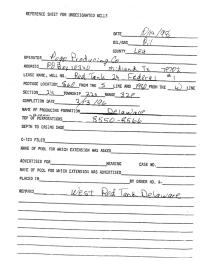 REFERENCE SHEET FOR UNDESIGNATED WELLS
DATE
OIL/GAS
COUNTY Lea
OPERATOR Pogo Producing Co
ADDRESS Midland Tx
LEASE NAME, WELL NO. Red Tank 34 Federal #1
FOOTAGE LOCATION FROM THE S LINE AND 1980 FROM THE W LINE
SECTION TOWNSHIP 22s RANGE 32E
COMPLETION DATE
NAME OF PRODUCING FORMATION Delaware
TOP OF PERFORATIONS 8550-8566
DEPTH TO CASING SHOE
C-123 FILED
NAME OF POOL FOR WHICH EXTENSION WAS ASKED
ADVERTISED FOR HEARING CASE NO.
NAME OF POOL FOR WHICH EXTENSION WAS ADVERTISED
PLACED IN BY ORDER NO. R-
West Red Tank Delaware